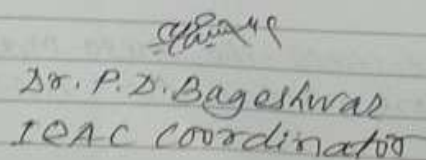 Dr. P. D. Bageshwar
IQAC Coordinator